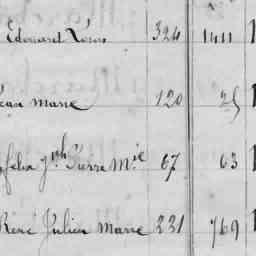 Edouard Louis 324 1411
Jean Marie 120 25
félix Jph Pierre Mie 67 63
René Julien Marie 221 769